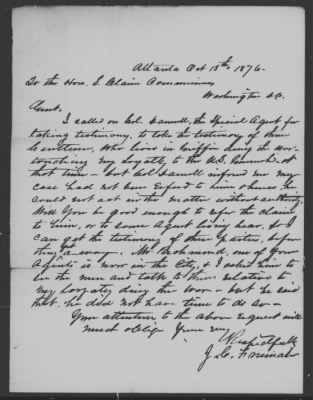 Atlanta Oct 18th 1876.
To the Hon. S. Claim Commissioner
Washington D.C.
Gent.
I called on Col. the Special Agent for
taking testimony, to take the testimony of three
Gentlemen, who lives in Griffin during the war
touching my loyalty to the U.S. Government at
that time - but Col. informed me my
case had not been referred to him & hence, he
could not act in the matter without authority.
Will you be good enough to refer the claim
to him, or to some Agent living near, so I
can get the testimony of these parties, before
they move away. Mr Richmond, one of your
Agents is now in the City, & I asked him to
see the men and talk to them in relation to
my loyalty during the War - but he said
that he did not have time to do so -
Your attention to the above request will
much oblige yours very
Respectfully
J. C. Foreman